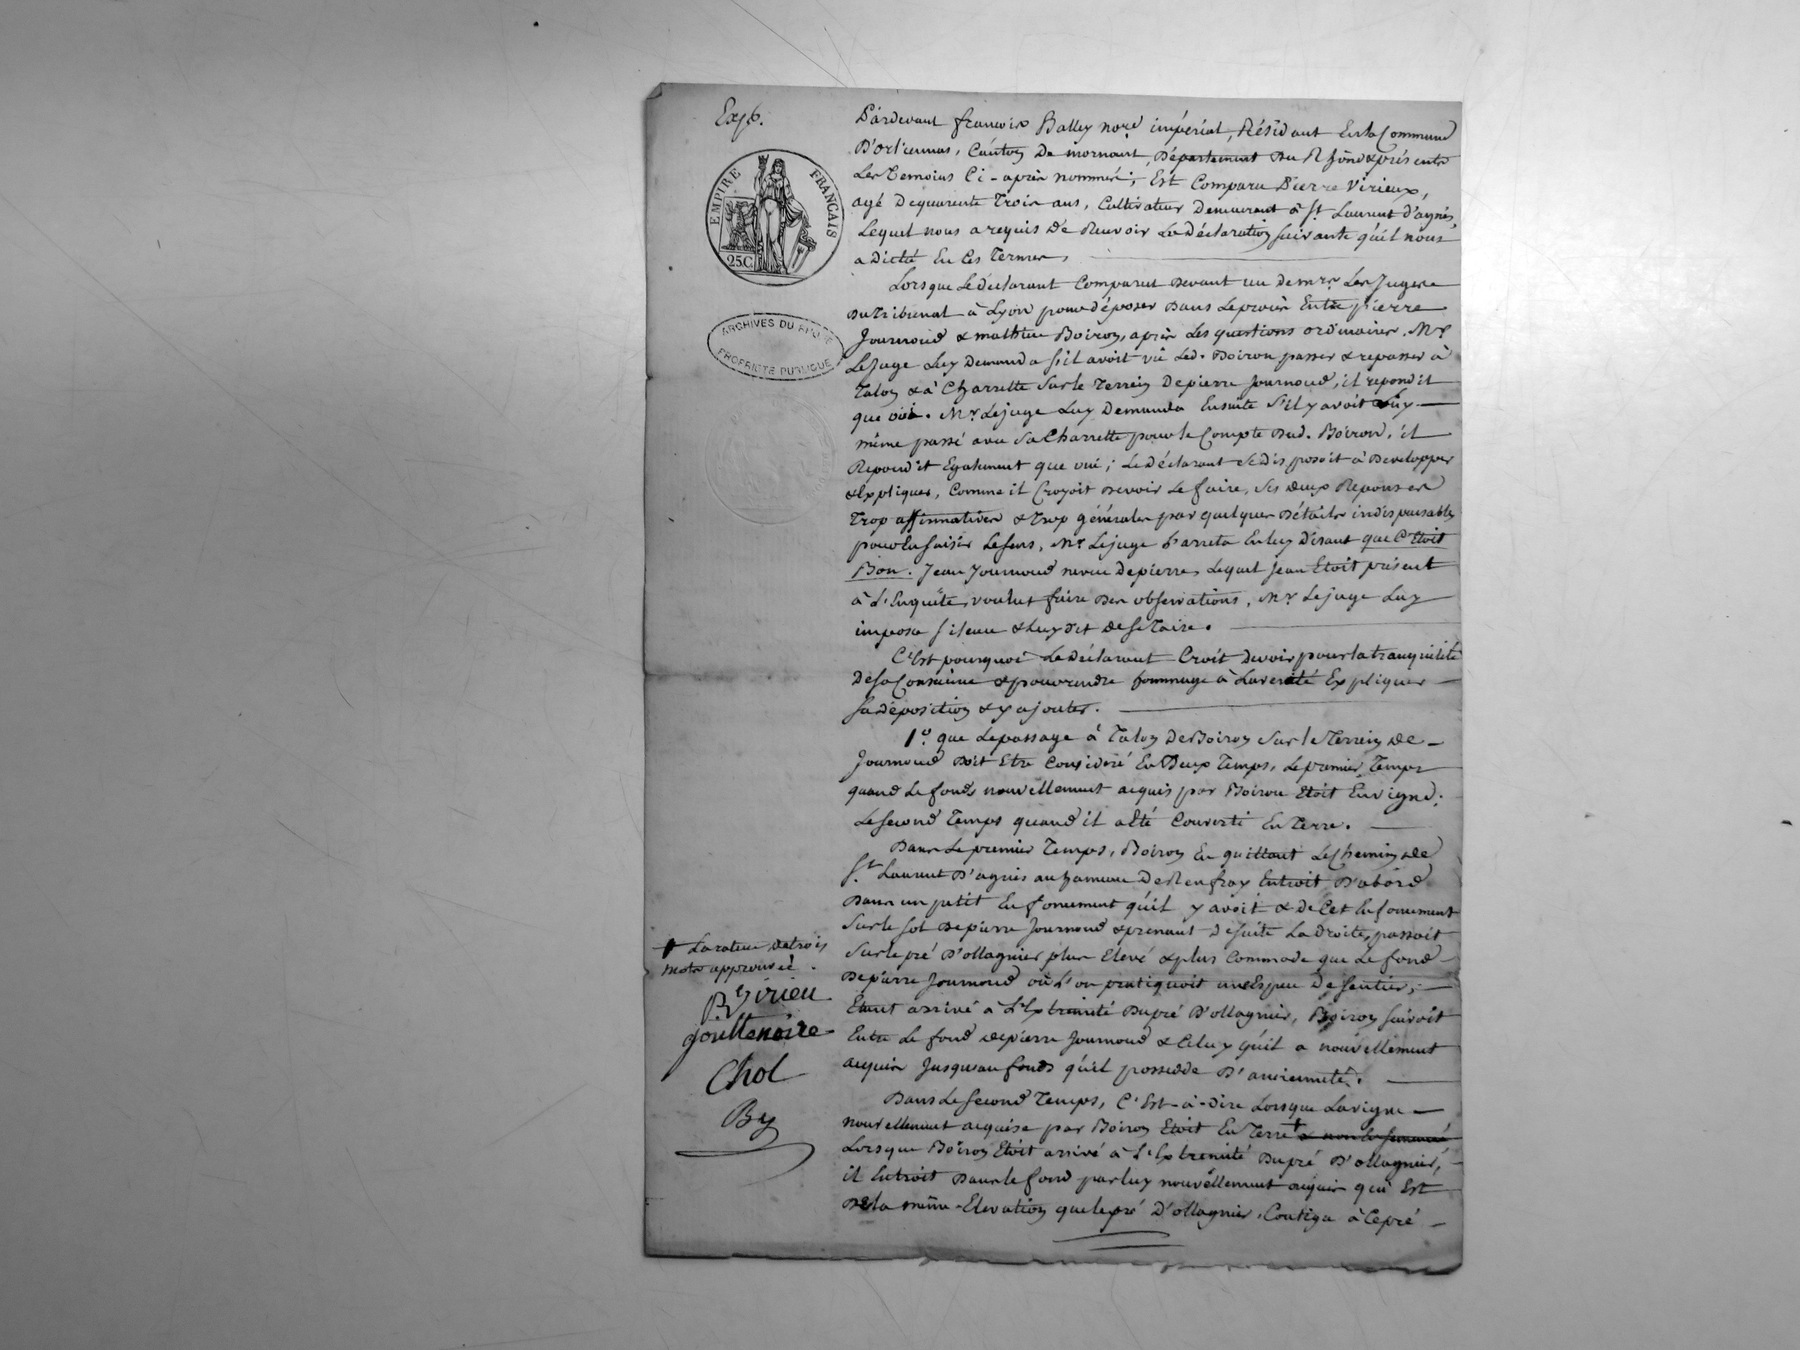 Exp.
EMPIRE FRANÇAIS
25.C
ARCHIVES DU RHÔNE
PROPRIÉTÉ PUBLIQUE
Pardevant francois Balley nore impérial, Résidant En la Commune
D'orlienas, Canton De mornant, Département Du Rhône & présents
Les Temoins Ci-après nommés; Est Comparu Pierre Virieux,
agé De quarente Trois ans, Cultivateur Demeurant à St Laurent d'agnis,
Lequel nous a requis De Recevoir La Déclaration suivante qu'il nous
a Dicté En Ces Termes,
Lorsque Le déclarant Comparut Devant un De mrs Les Juges
Du Tribunal à Lyon pour déposer Dans Le procès Entre pierre
Journoud & mathieu Boiron, après Les questions ordinaires, Mr
Le Juge Luy Demanda s'il avoit vû Led. Boiron passer & repasser à
Talon & à Charrette sur le Terrein De pierre Journoud, il repondit
que oui. Mr Le juge Luy Demanda Ensuite s'il y avoit Luy
même passé avec sa Charrette pour le Compte Dud. Boiron, il
Repondit Egalement que oui; Le Déclarant se disposoit à Developper
& Expliquer, Comme il Croyoit Devoir Le faire, ses deux Reponses
Trop affirmatives & trop générales par quelques Détails indispensables
pour En saisir Le sens, Mr Le juge L'arreta En luy Disant que C'Etoit
Bon. Jean Journoud neveu De pierre, Lequel Jean Etoit présent
à L'Enquête, voulut faire Des observations, Mr Le juge Luy
imposa silence & Luy dit de se Taire.
C'Est pourquoi Le Déclarant Croit Devoir pour la tranquilité
De sa Conscience & pour rendre hommage à La verité Expliquer
sa Déposition & y ajouter.
1º. que Le passage à Talon De Boiron sur le Terrein De
Journoud Doit Etre Consideré En Deux Temps, Le premier Temps
quand Le fonds nouvellement acquis par Boiron Etoit En vigne;
Le second Temps quand il a Eté Converti En Terre.
Dans Le premier Temps, Boiron En quittant Le Chemin De
St Laurent D'agnis au hameau De Renfray Entroit D'abord
Dans un petit Enfoncement qu'il y avoit & de Cet Enfoncement
sur le sol De pierre Journoud & prenant De suite La Droite, passoit
sur le pré D'ollagnier plus Elevé & plus Commode que Le fond
De pierre Journoud où L'on pratiquoit une Espece De sentier;
Etant arrivé à L'Extremité Du pré D'ollagnier, Boiron suivoit
Entre Le fond De pierre Journoud & Celuy qu'il a nouvellement
acquis Jusqu'au fonds qu'il possedde D'ancienneté.
Dans Le second Temps, C'Est-à-dire Lorsque La vigne
nouvellement acquise par Boiron Etoit En Terre
Lorsque Boiron Etoit arrivé à L'Extremité Du pré D'ollagnier,
il Entroit Dans le fond par luy nouvellement acquis qui Est
De la même Elevation que le pré D'ollagnier, Contigu à Ce pré
La rature de trois
mots approuvée.
P Virieu
goultenoire
Chol
By